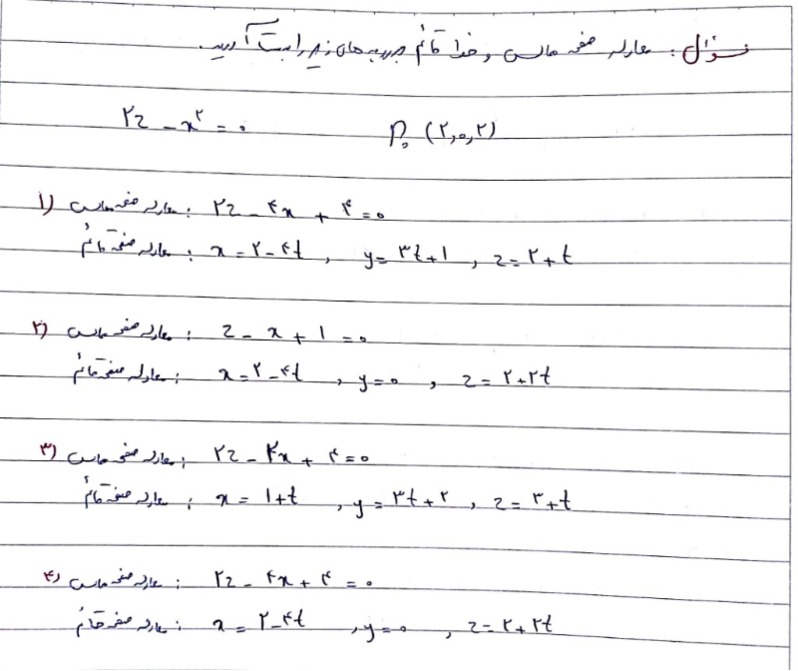 سؤال: معادله صفحه مماس و خط قائم بر رویه های زیر را بدست آورید.
۲z - x² = ۰    P₀ (۲,۰,۲)
۱) معادله صفحه مماس: ۲z - ۴x + ۴ = ۰
معادله صفحه قائم: x = ۲ - ۴t , y = ۳t + ۱ , z = ۲ + t
۲) معادله صفحه مماس: z - x + ۱ = ۰
معادله صفحه قائم: x = ۲ - ۴t , y = ۰ , z = ۲ + ۲t
۳) معادله صفحه مماس: ۲z - ۴x + ۴ = ۰
معادله صفحه قائم: x = ۱ + t , y = ۳t + ۲ , z = ۳ + t
۴) معادله صفحه مماس: ۲z - ۴x + ۴ = ۰
معادله صفحه قائم: x = ۲ - ۴t , y = ۰ , z = ۲ + ۲t